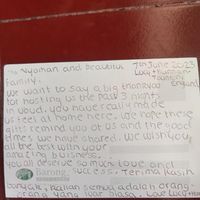 To Nyoman and beautiful 7th June 2023
family, Lucy +
England
We want to say a big thankyou
for hosting us the past 3 nights
in Ubud. You have really made
us feel at home here. We hope these
gifts remind you of us and the good
times we have shared. We wish you
all the best with your
amazing business.
you all deserve so much love and
success. Terima kasih
banyak, kalian semua adalah orang-
orang yang luar biasa. Love Lucy +